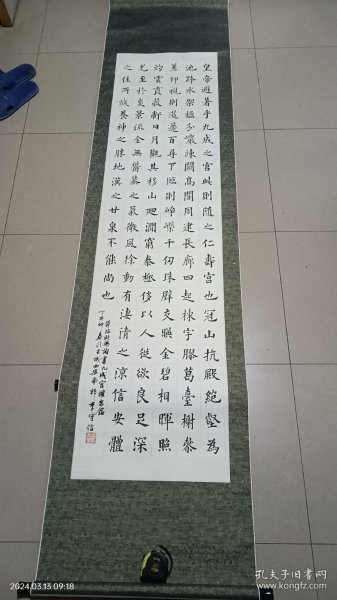 皇帝避暑乎九成之宮此則隨之仁壽宮也冠山抗殿絕壑為
池跨水架楹分巖竦闕高閣周建長廊四起棟宇膠葛臺榭參
差仰視則迢遰百尋下臨則崢嶸千仞珠壁交映金碧相暉照
灼雲霞蔽虧日月觀其移山迴澗窮泰極侈以人從欲良足深
尤至於炎景流金無鬱蒸之氣微風徐動有淒清之涼信安體
之佳所誠養神之勝地漢之甘泉不能尚也
歐陽詢書九成宮醴泉銘
丁亥仲春
2024.03.13 09:18
孔夫子旧书网
kongfz.com